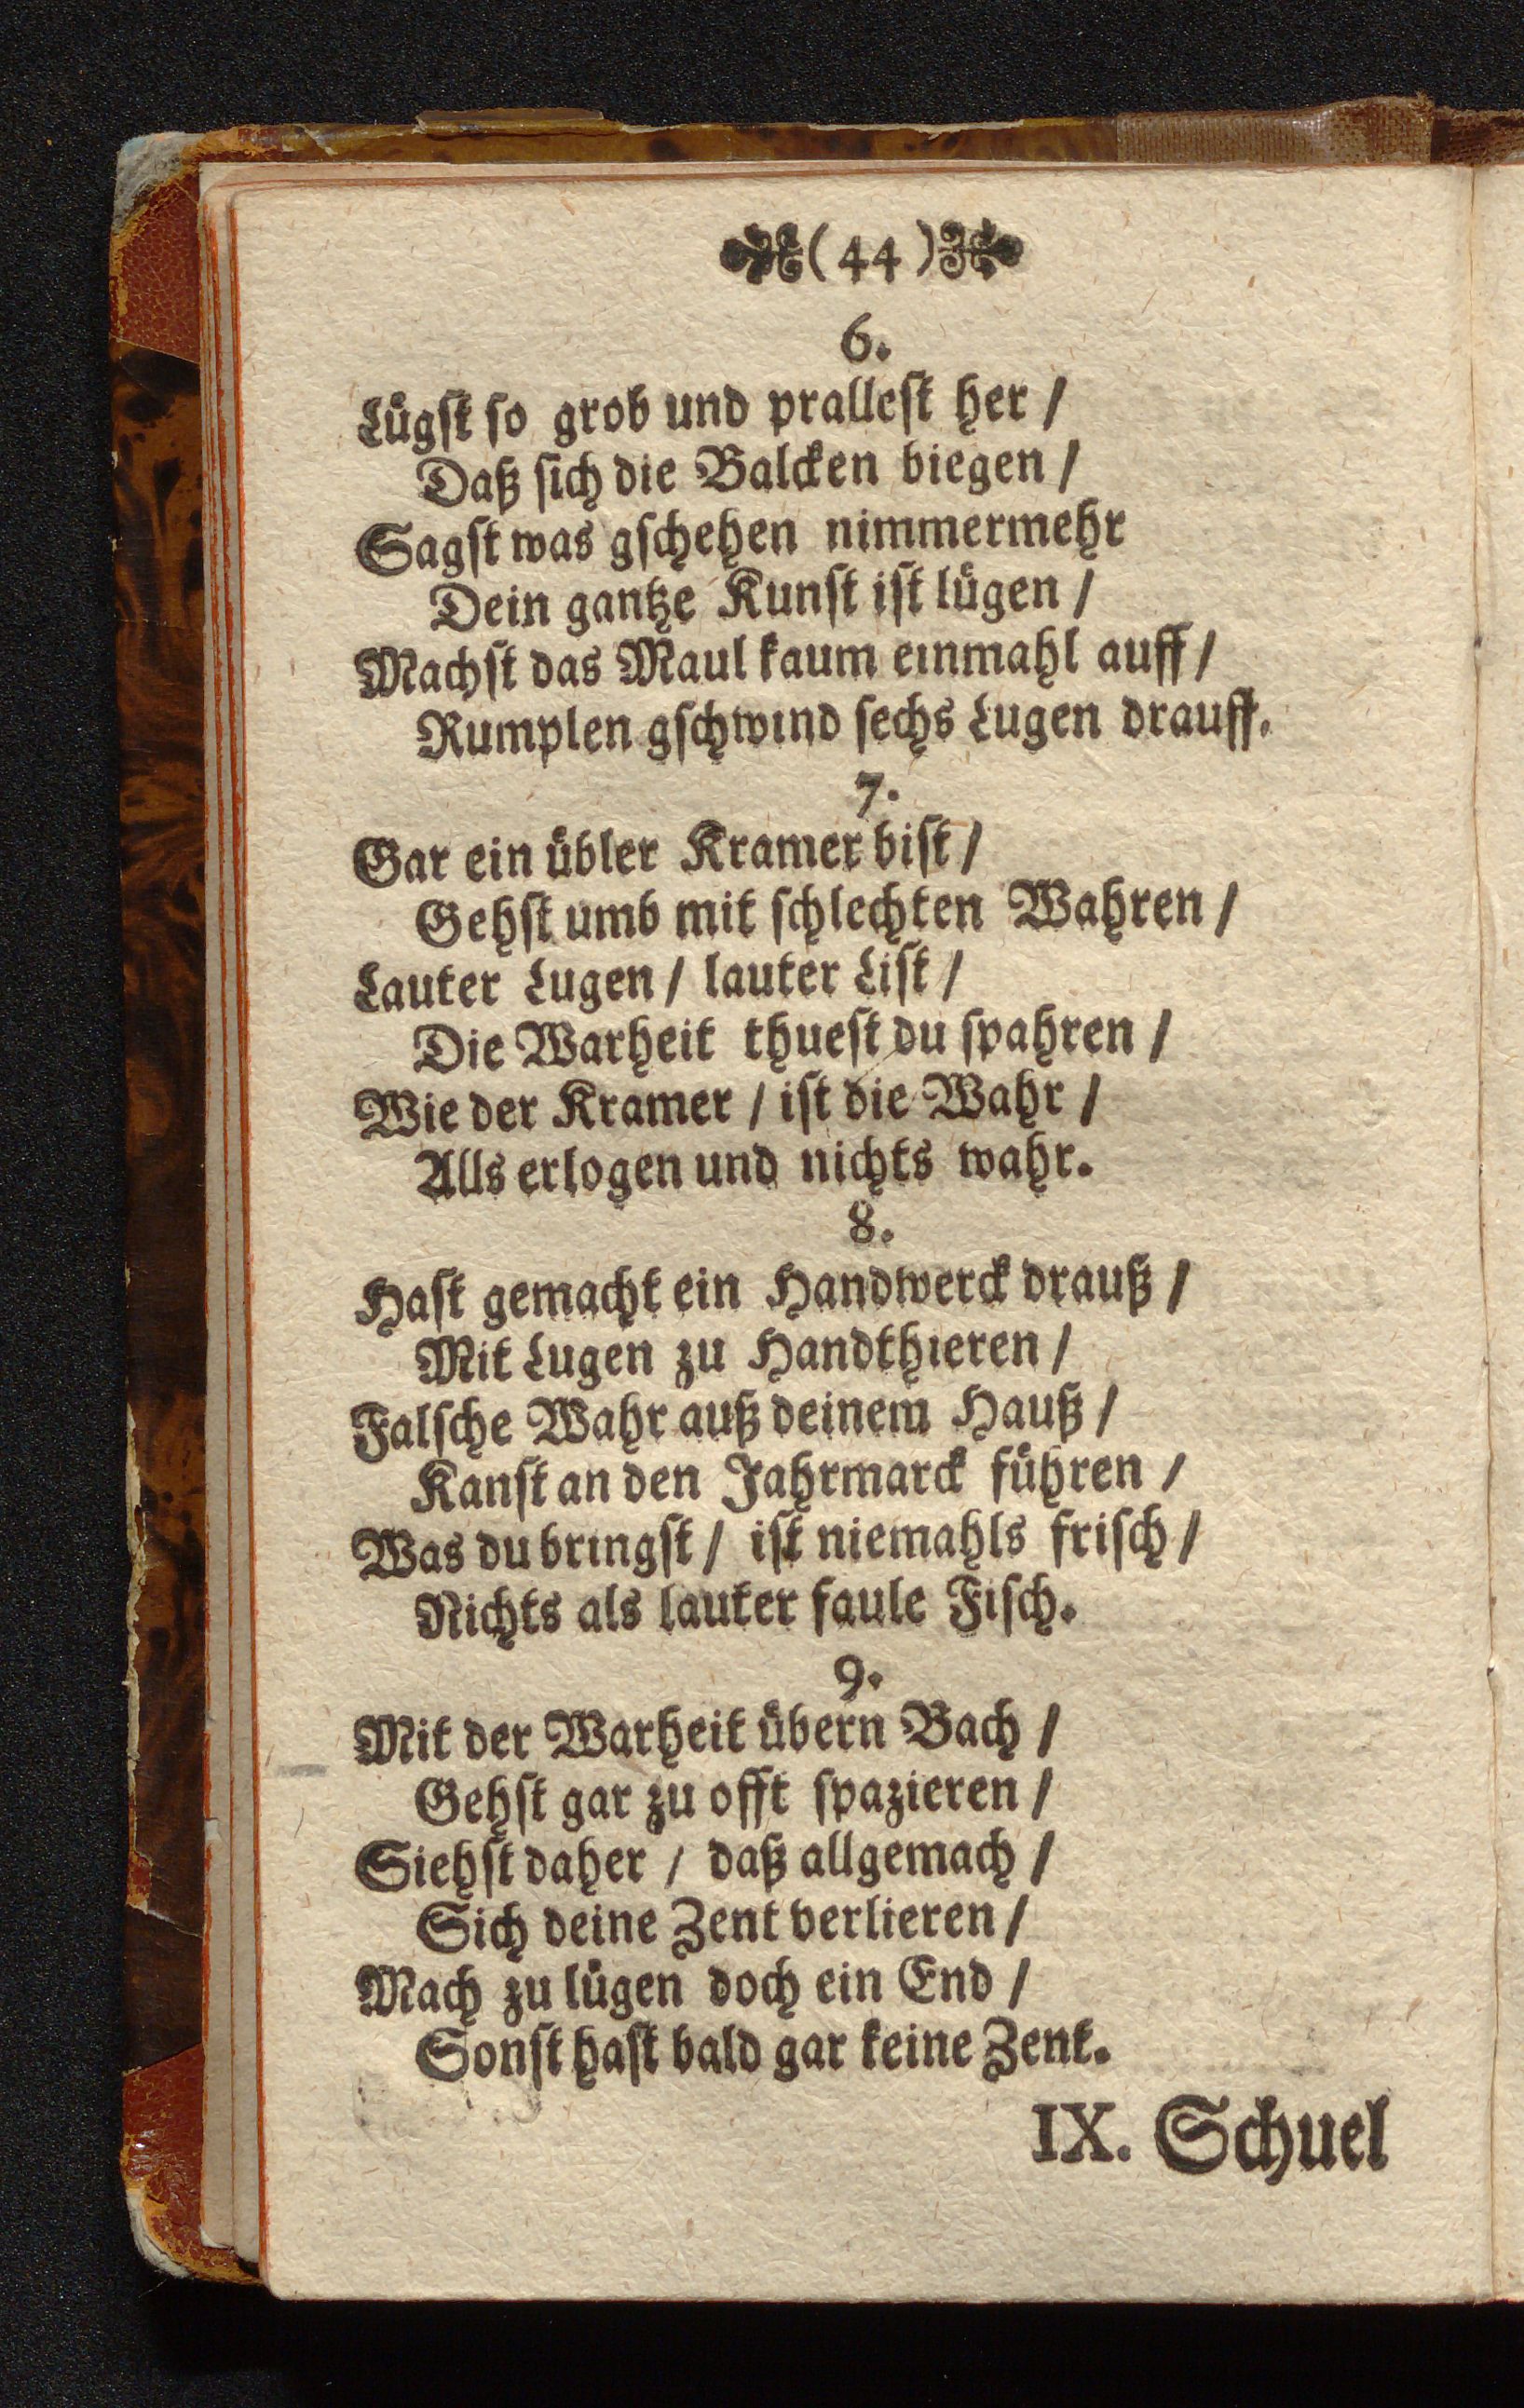 (44)
6.
Lügst so grob und prallest her /
Daß sich die Balcken biegen /
Sagst was gschehen nimmermehr
Dein gantze Kunst ist lügen /
Machst das Maul kaum einmahl auff /
Rumplen gschwind sechs Lugen drauff.
7.
Gar ein übler Kramer bist /
Gehst umb mit schlechten Wahren /
Lauter Lugen / lauter List /
Die Warheit thuest du spahren /
Wie der Kramer / ist die Wahr /
Alls erlogen und nichts wahr.
8.
Hast gemacht ein Handwerck drauß /
Mit Lugen zu Handthieren /
Falsche Wahr auß deinem Hauß /
Kanst an den Jahrmarck führen /
Was du bringst / ist niemahls frisch /
Nichts als lauter faule Fisch.
9.
Mit der Warheit übern Bach /
Gehst gar zu offt spazieren /
Siehst daher / daß allgemach /
Sich deine Zent verlieren /
Mach zu lügen doch ein End /
Sonst hast bald gar keine Zent.
IX. Schuel